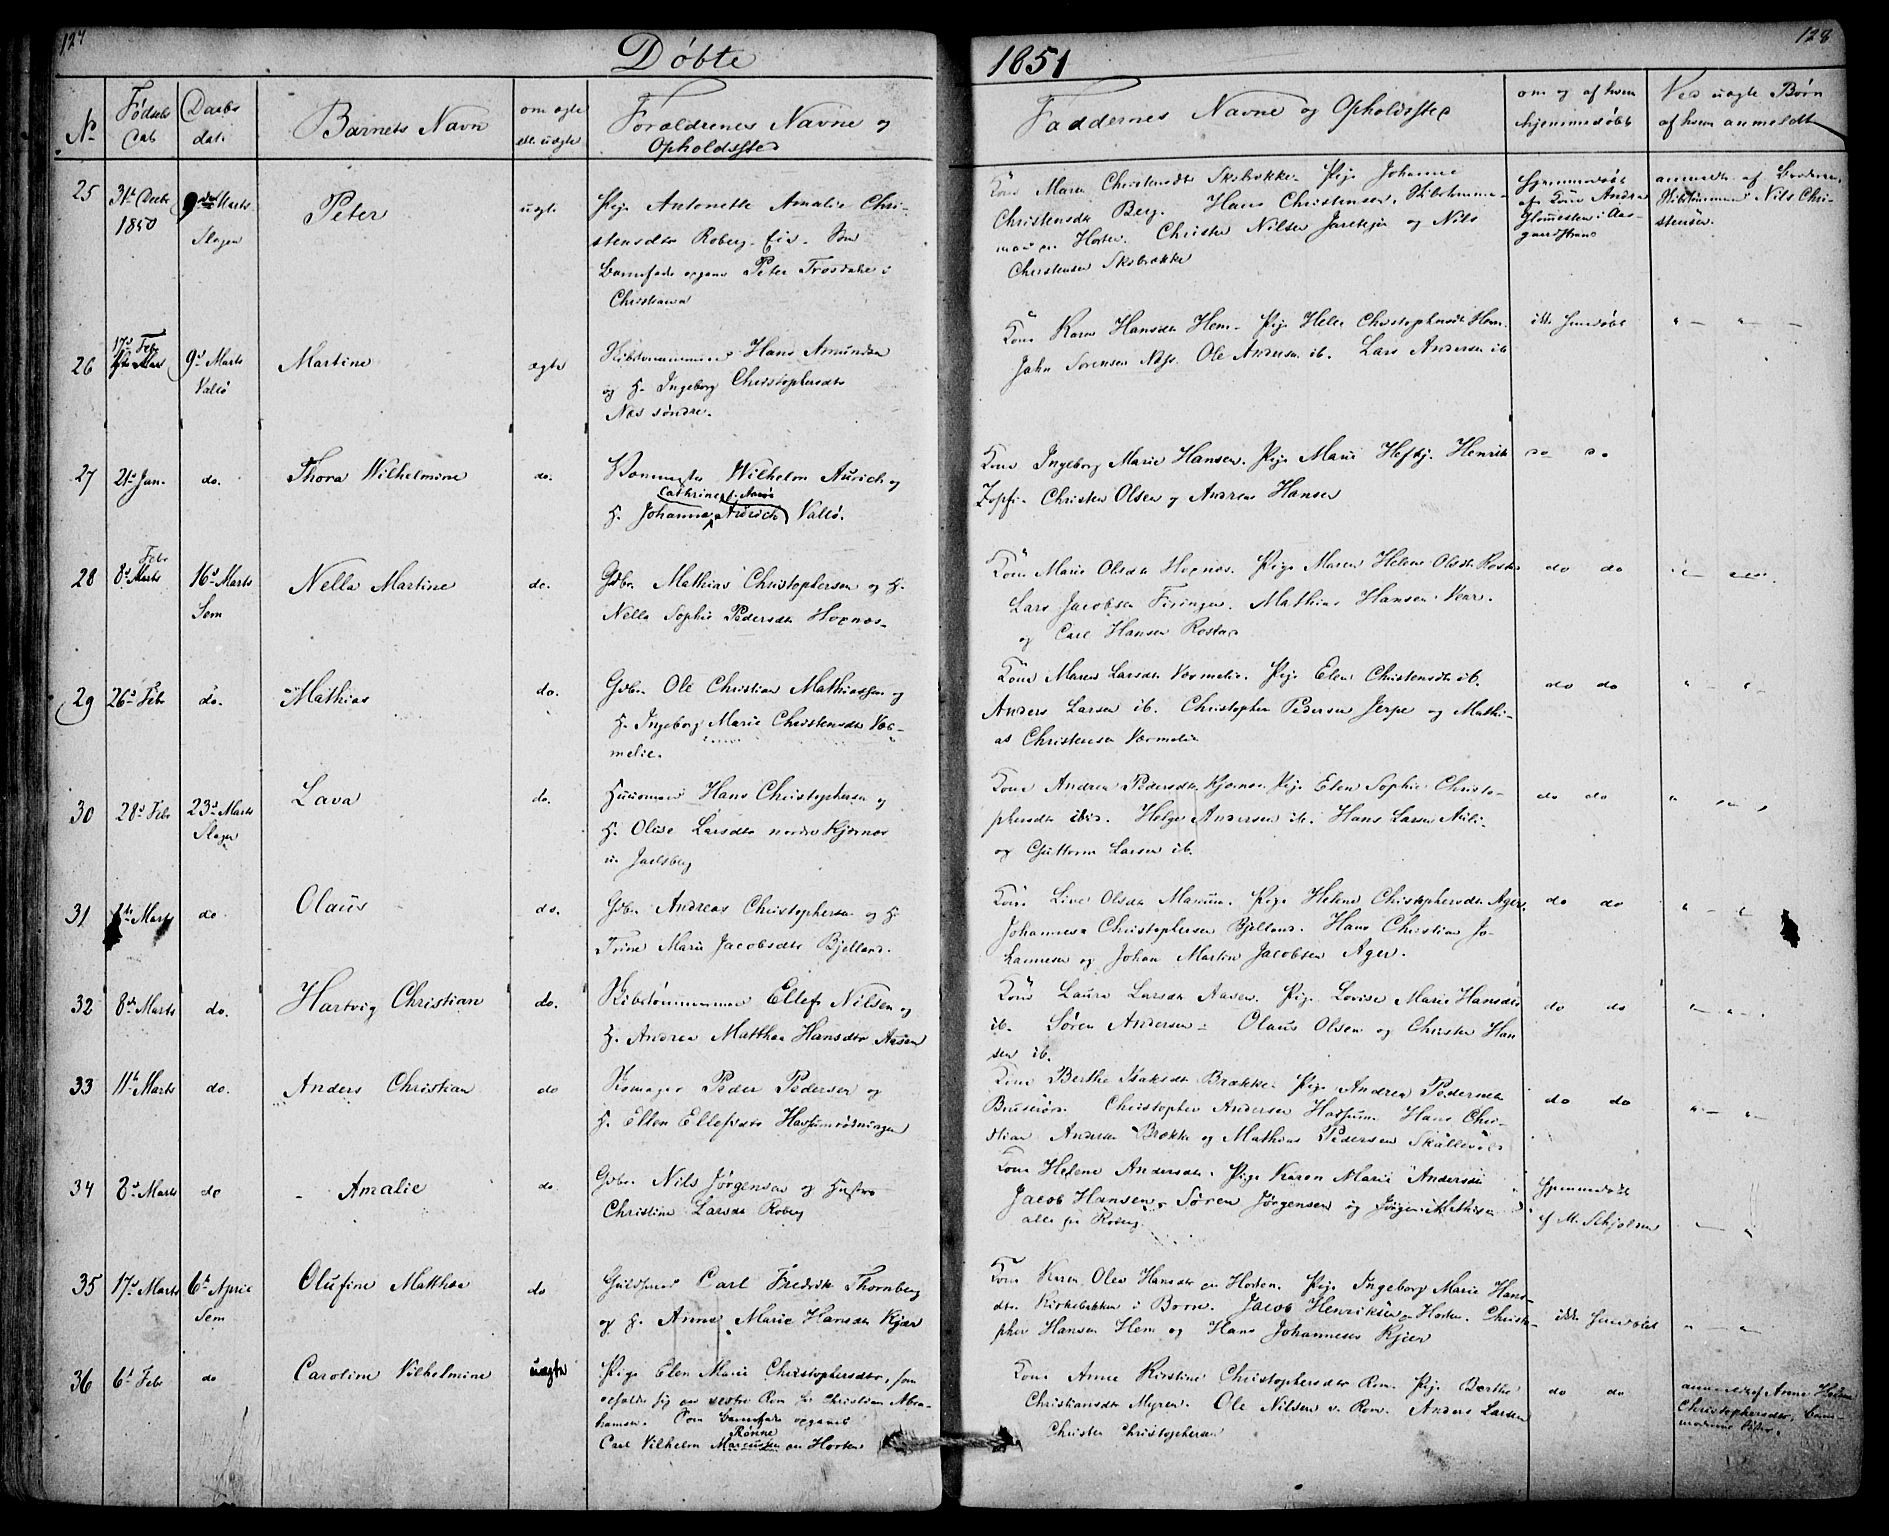 127
Døbte
1851
128
N.
Fødsels
Dat
Daabs
dat.
Barnets Navn
om ægte
ell. uægte
Forældrenes Navne og
Opholdssted
Faddernes Navne og Opholdssted
om og af hvem
hjemmedøbt
Ved uægte Børn
af hvem anmeldt
25
31te Decbr
1850
9de Marts
Slagen
Peter
uægte
Pige Antonette Amalie Chri-
stensdtr Roberg. Som
Barnefader opgives Peter Trosdahl i
Christiania
Kone Maren Christensdtr Skibrække. Pige Johanne
Christensdtr Berg. Hans Christensen, Skibstømmer-
mand Horten. Christen Nilsen Jarekjer og Nils
Christensen Skibrække
Hjemmedøbt
Aas-
gaardstrand
anmeldt af Broderen
Skibstømmermand Nils Chri-
stensen.
26
17de Febr
9de Marts
Vallø
Martine
ægte
Skibstømmermand Hans Amundsen
og H. Ingeborg Christophersdtr
Næs søndre.
Kone Karen Hansdtr Hem. Pige Helene Christophersdtr Hem.
John Sørensen Næs. Ole Andersen ib. Lars Andersen ib
ikke hjemdøbt
" — " —
27
21de Jan.
do.
Thora Wilhelmine
do.
Wilhelm Aurich og
Cathrine f. Aarøe
H. Johanna Aurich Vallø.
Kone Ingeborg Marie Hansen. Pige Marie Henrik
Zopfi. Christen Olsen og Andreas Hansen
do do
28
Febr
8de Marts
16de Marts
Sem
Nella Martine
do.
Gdbr. Mathias Christophersen og H.
Nella Sophie Pedersdtr Hognæs.
Kone Marie Olsdtr Hognæs. Pige Maren Helene Olsdtr Rostad
Lars Jacobsen Firingen. Mathias Hansen Vear.
og Carl Hansen Rostad
do do
29
26de Febr
do.
Mathias
do.
Gdbr. Ole Christian Mathiassen og
H. Ingeborg Marie Christensdtr Vær-
melie.
Kone Maren Larsdtr Værmelie. Pige Elen Christensdtr ib.
Anders Larsen ib. Christopher Pedersen Jerpe og Mathi-
as Christensen Værmelie
do do
" — " —
30
28de Febr
23de Marts
Slagen
Lava
do.
Huusmand Hans Christophersen og
H. Olise Larsdtr nordre Kjærnæs
u. Jarlsberg
Kone Andrea Pedersdtr Kjærnæs. Pige Elen Sophie Christo-
phersdtr ibid. Helge Andersen ib. Hans Larsen
og Guttorm Larsen ib.
do do
31
1te Marts
do.
Olaus
do.
Gdbr. Andreas Christophersen og H
Trine Marie Jacobsdtr Bjelland.
Kone Live Olsdtr Marum. Pige Helene Christophersdtr Ager.
Johannes Christophersen Bjelland. Hans Christian Jo-
hannesen og Johan Martin Jacobsen Ager.
do do
" — "
32
8de Marts
do.
Hartvig Christian
do.
Skibstømmermand Ellef Nilsen og
H. Andrea Matthea Hansdtr Aasen
Kone Laura Larsdtr Aasen. Pige Lovise Marie Hansdtr
ib. Søren Andersen. Olaus Olsen og Christen Han
sen ib.
do do
33
11te Marts
do.
Anders Christian
do
Skomager Peder Pedersen og
H. Ellen Ellefsdtr Hassumrødningen
Kone Berthe Isaksdtr Brække. Pige Andrea Pedersdtr
Christopher Andersen Hassum. Hans Chri-
stian Andersen Brække og Mathias Pedersen Skallevold
do do
" — " —
34
8de Marts
do
Amalie
do
Gdbr. Nils Jørgensen og Hustro
Christine Larsdtr Roberg
Kone Helene Andersdtr. Pige Karen Marie Andersdtr
Jacob Hansen. Søren Jørgensen og Jørgen Mathisen
alle fra Roberg
Hjemmedøbt
af M. Schjølsen
35
17de Marts
6te April
Sem
Olufine Matthea
do
Guldsmed Carl Fredrik Thornberg
og H. Anne Marie Hansdtr Kjær
Kone Karen Olea Hansdtr Horten. Pige Ingeborg Marie Hans-
dtr. Kirkebakken i Borre. Jacob Henriksen Horten. Christo-
pher Hansen Hem og Hans Johannesen Kjær
ikke hjemdøbt
" "
36
6te Febr
do
Caroline Vilhelmine
uægte
Pige Elen Marie Christophersdtr, som
opholder sig paa vestre Rom hos Christian Abra-
hamsen. Som Barnefader opgives
Rønne
Carl Vilhelm Marcussen Horten
Kone Anne Kirstine Christophersdtr Rom. Pige Berthe
Christiansdtr Myren. Ole Nilsen v. Rom. Anders Larsen
Christen Christophersen
do do
anmeldt af Anne Helene
Christophersdtr, Barne-
moderens Søster.